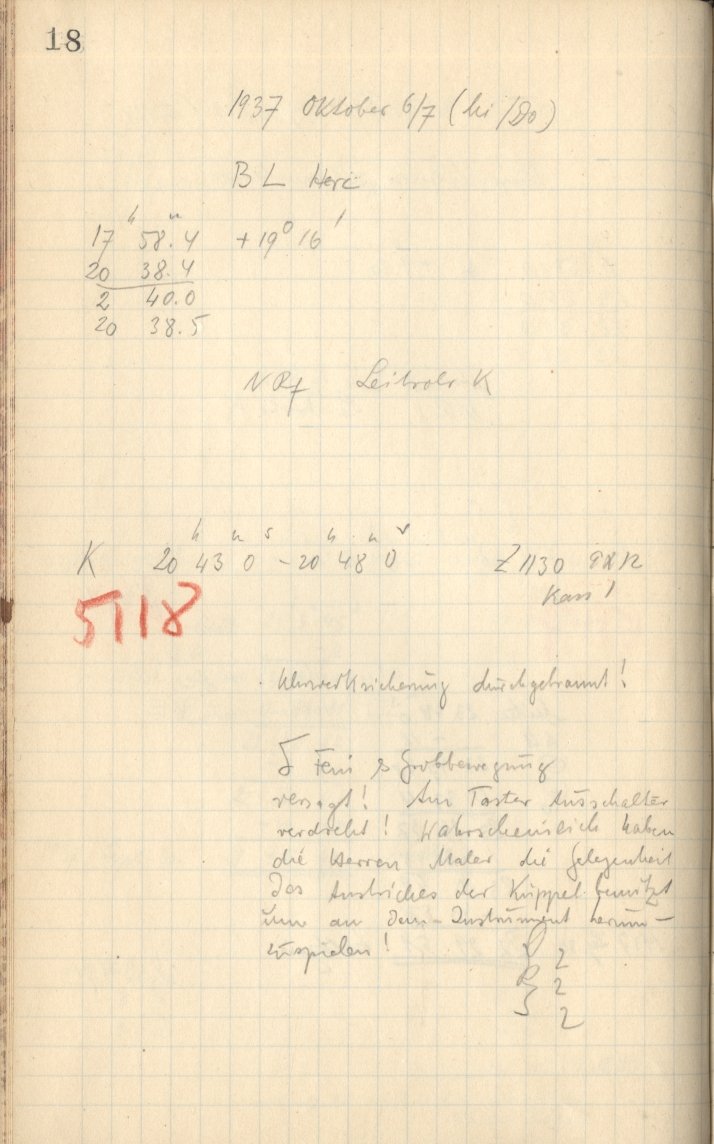 18
1937 Oktober 6/7 (Mi/Do)
BL Herc
h m
17 58.4 +19° 16'
20 38.4
2 40.0
20 38.5
Leitrohr K
h m s h m s
K 20 43 0 - 20 48 0 Z 1130
5118
Kass 1
Uhrwerksicherung durchgebrannt!
δ Fein & Grobbewegung
versagt! Am Taster Ausschalter
verdreht! Wahrscheinlich haben
die Herren Maler die Gelegenheit
des Anstriches der Kuppel benützt
um an dem Instrument herum-
zuspielen!
2
2
2